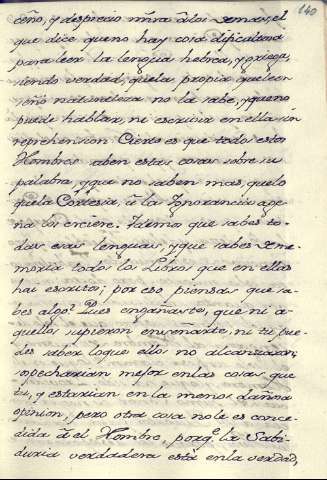 140
ceño, y desprecio mira â los demas, el
que dice que no hay cosa dificultosa
para leer la lengua hebrea, y griega,
siendo verdad, que la propia que le en
señó naturaleza no la sabe, y que no
puede hablar, ni escrivir en ella sin
reprehension Cierto es que todos estos
Hombres aben estas cosas sobre su
palabra, y que no saben mas, que lo
que la Cortesia, â la Ignorancia age
na los enciere. Idem que sabes to-
das esas lenguas, y que sabes de me
moria todos los Libros que en ellas
hai escritos; por eso piensas que sa-
bes algo? Pues engañaste, que ni a-
quellos supieron enseñarte, ni tu pue-
des saber lo que ellos no alcanzaron;
sopecharian mejor en las cosas que
tu, y estarian en la menos dañosa
opinion, pero otra cosa no le es conce-
dida â el Hombre, porq.e la Sabi-
duria verdadera està en la verdad,